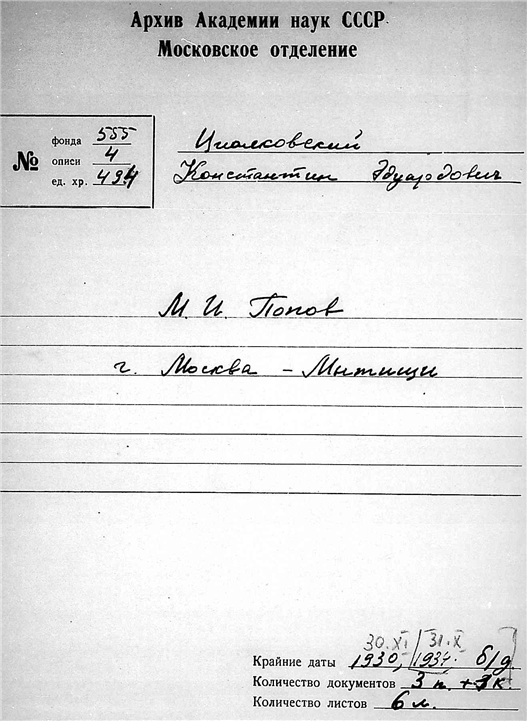 Архив Академии наук СССР
Московское отделение
№
фонда 555
описи 4
ед. хр. 494
Циолковский
Константин Эдуардович
М. И. Попов
г. Москва - Мытищи
30.XI 31.X
Крайние даты 1930, 1934. б/д.
Количество документов 3 п. + 3 к.
Количество листов 6 л.